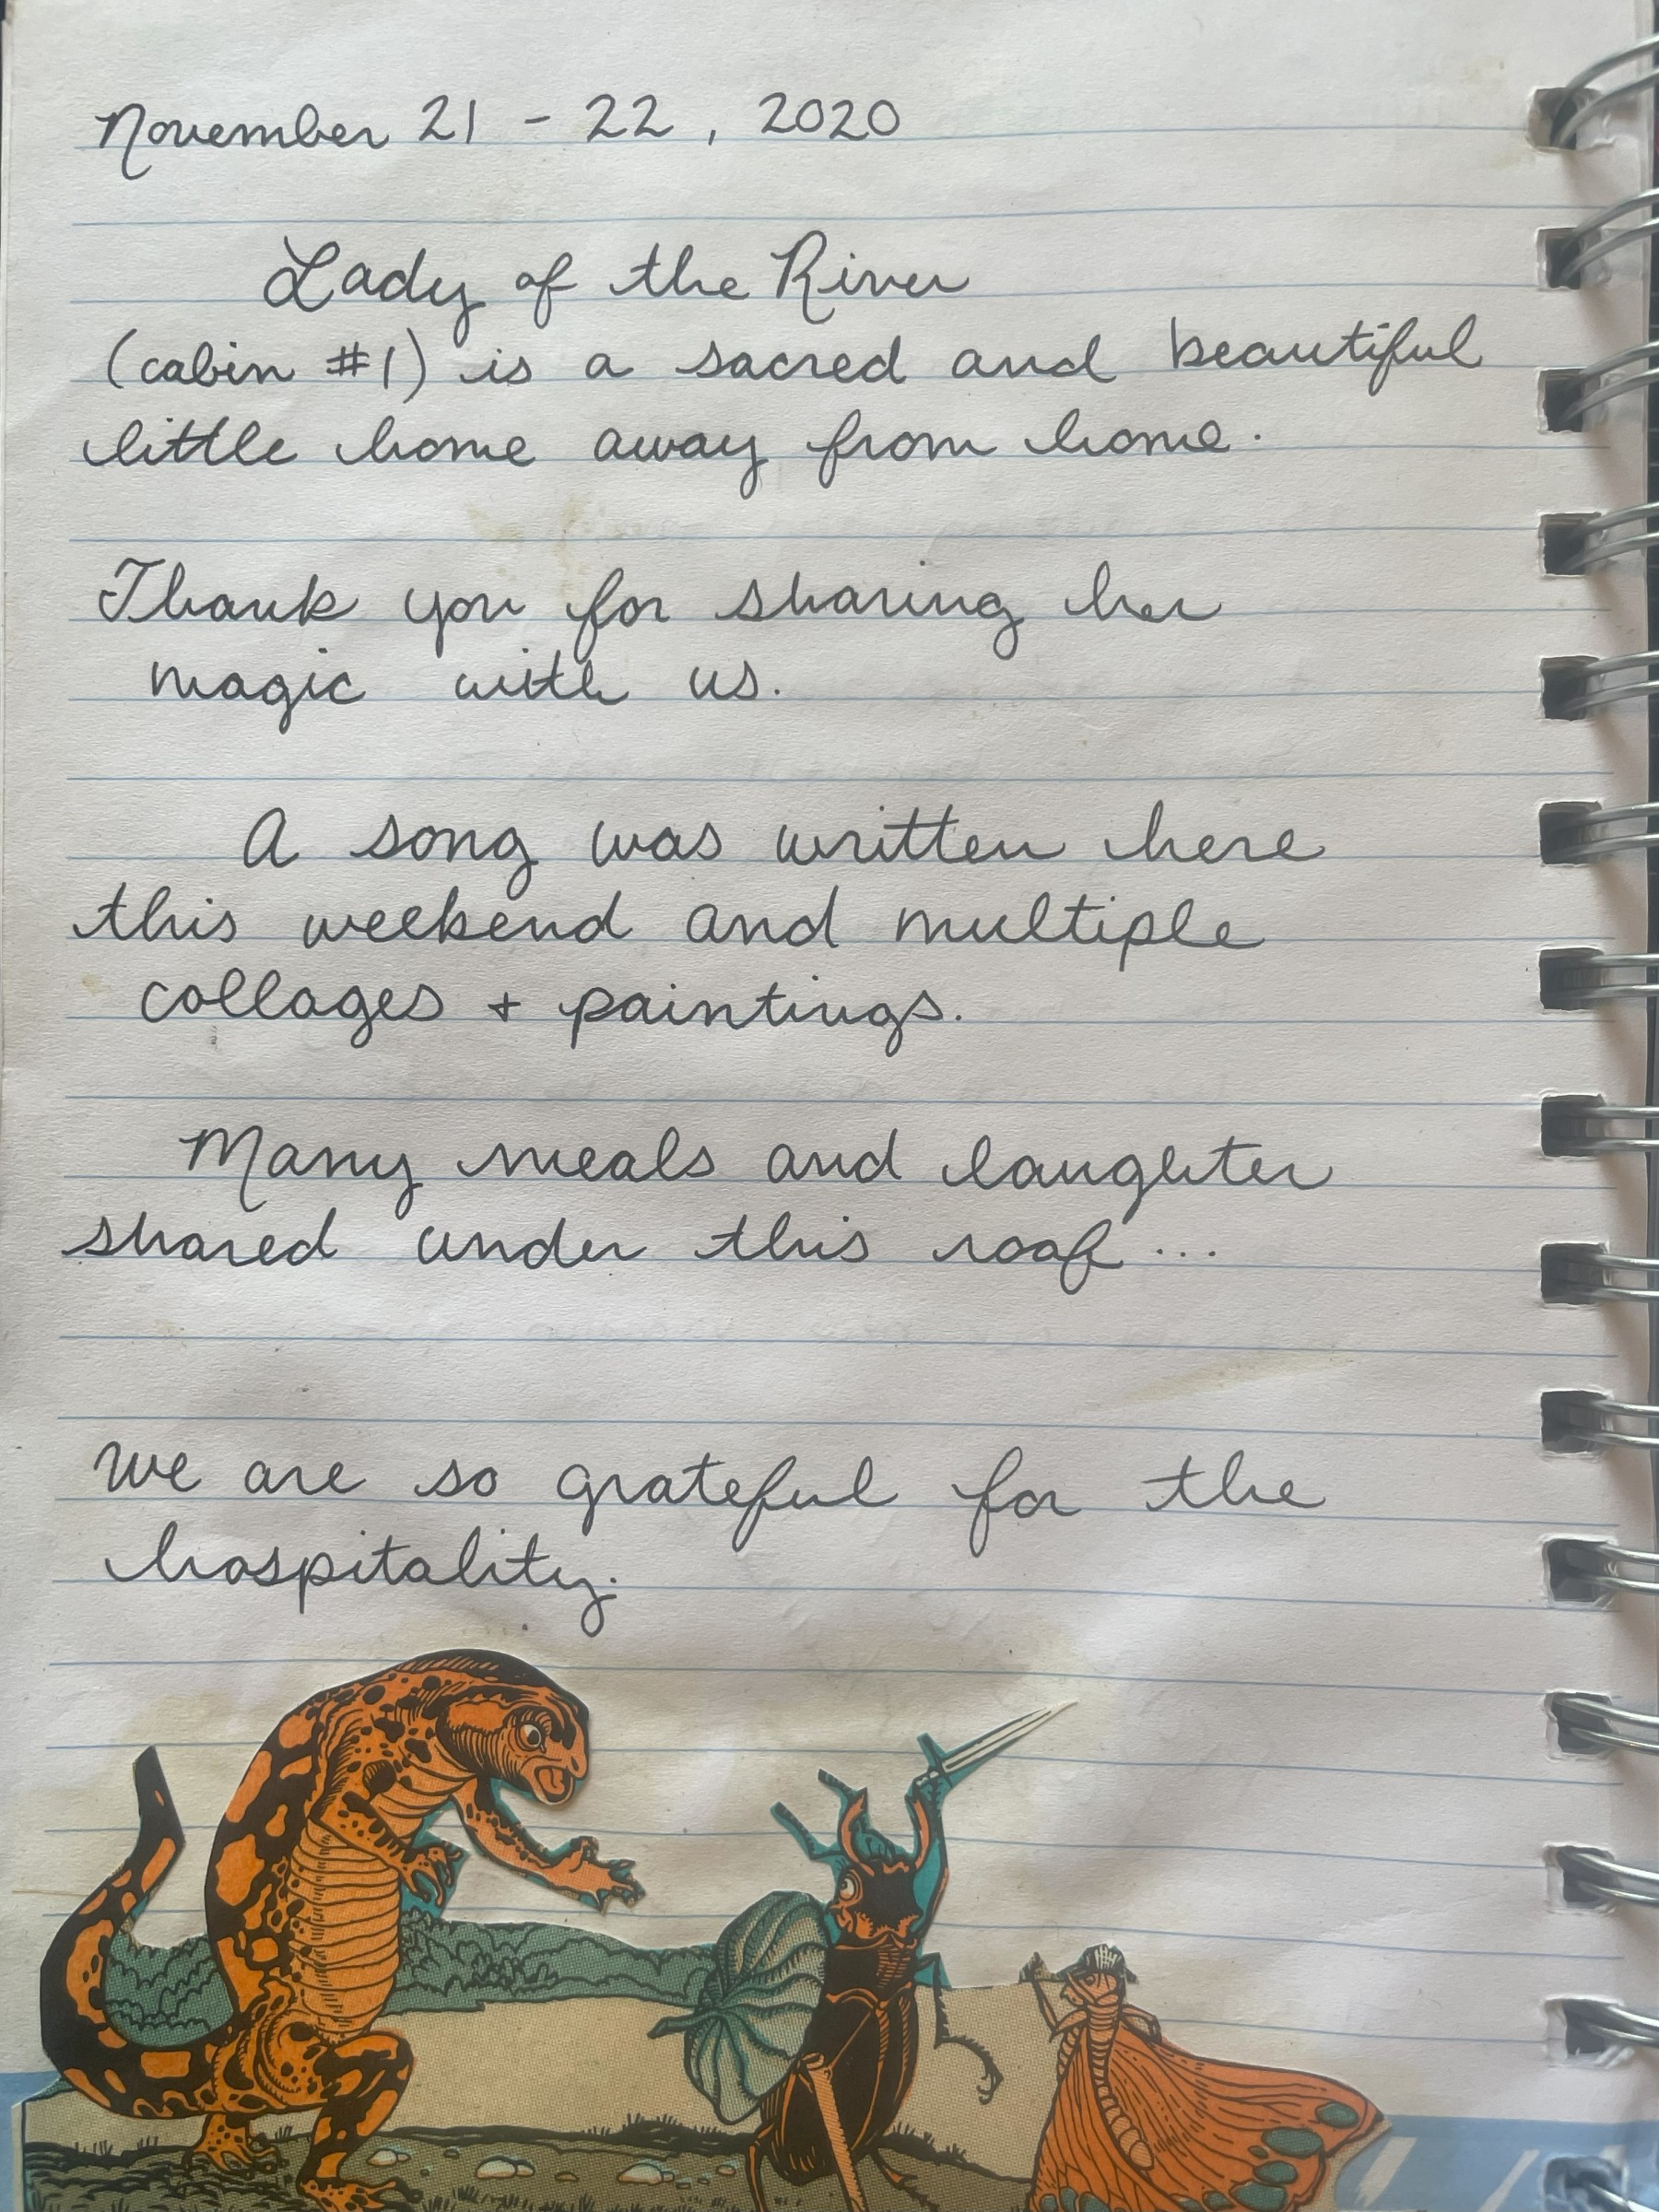 November 21 - 22, 2020
Lady of the River
(cabin #1) is a sacred and beautiful
little home away from home.
Thank you for sharing her
magic with us.
A song was written here
this weekend and multiple
collages + paintings.
Many meals and laughter
shared under this roof...
We are so grateful for the
hospitality.